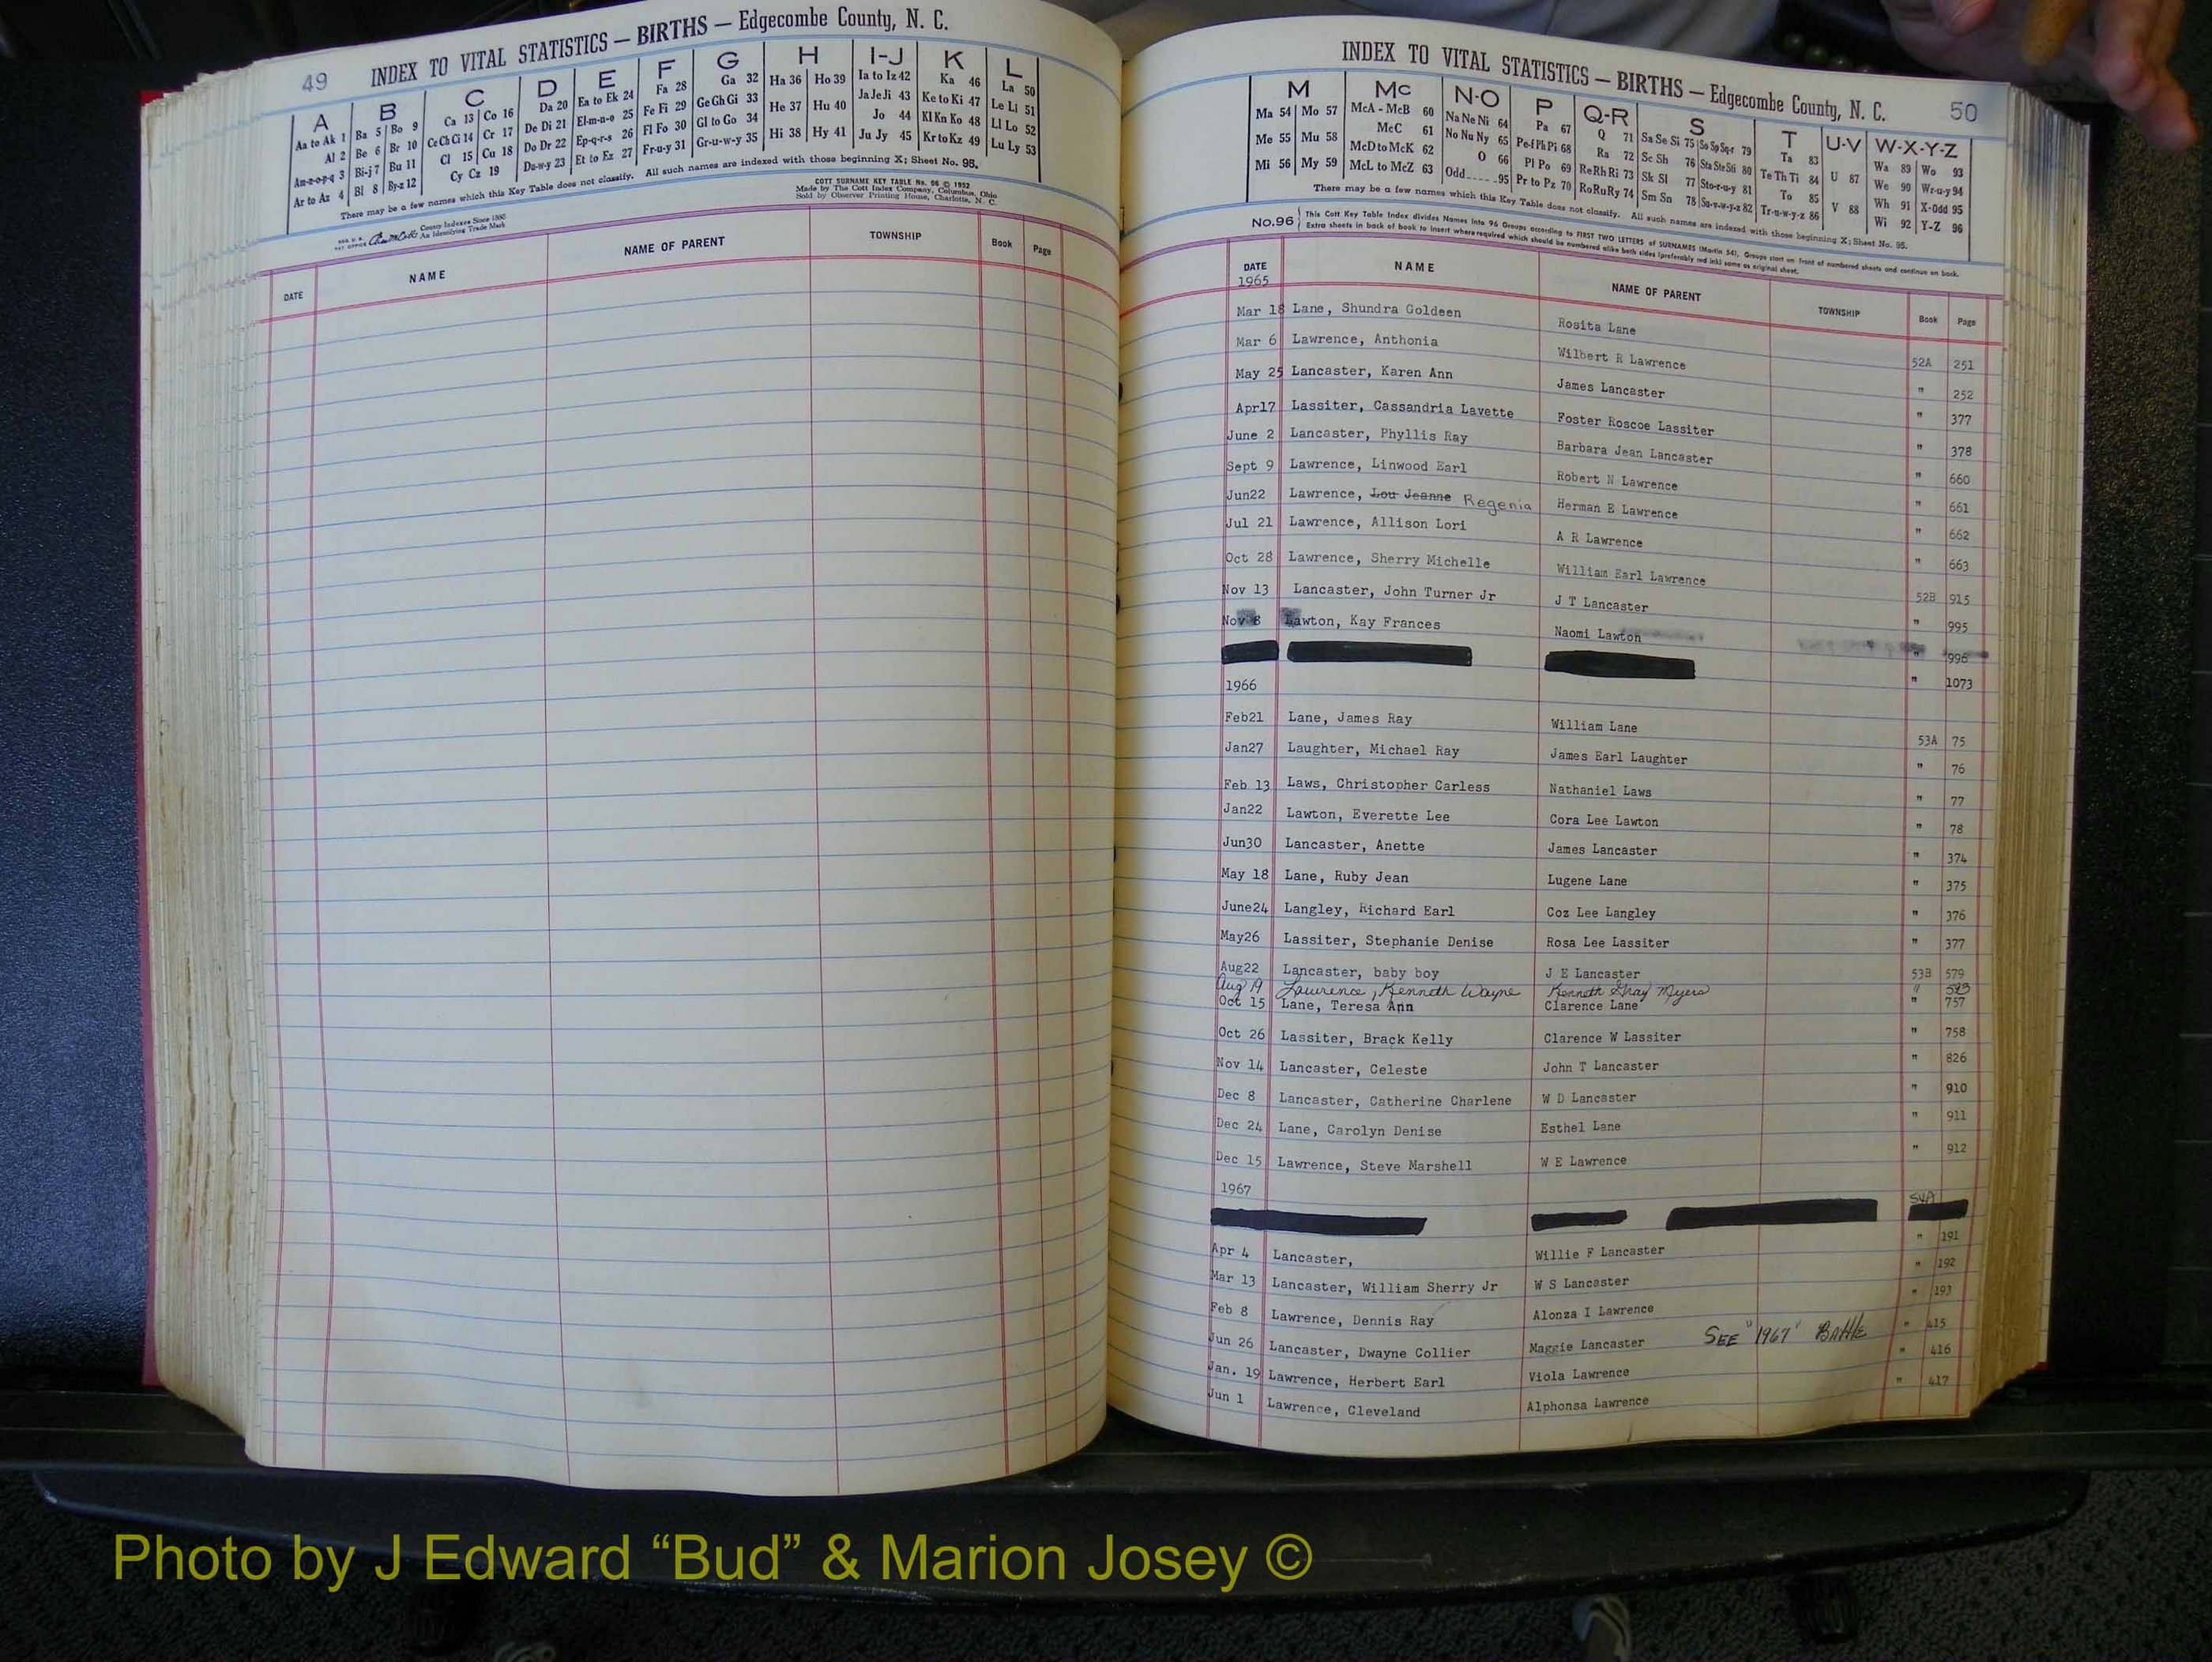 49 INDEX TO VITAL STATISTICS — BIRTHS — Edgecombe County, N. C.
A B C D E F G H I-J K L
Aa to Ak 1 Ba 5 Bo 9 Ca 13 Co 16 Da 20 Ea to Ek 24 Fa 28 Ga 32 Ha 36 Ho 39 Ia to Iz 42 Ka 46 La 50
Al 2 Be 6 Br 10 Ce Ch Ci 14 Cr 17 De Di 21 El-m-n-o 25 Fe Fi 29 Ge Gh Gi 33 He 37 Hu 40 Ja Je Ji 43 Ke to Ki 47 Le Li 51
Am-n-o-p-q 3 Bi-j 7 Bu 11 Cl 15 Cu 18 Do Dr 22 Ep-q-r-s 26 Fl Fo 30 Gl to Go 34 Hi 38 Hy 41 Jo 44 Kl Kn Ko 48 Ll Lo 52
Ar to Az 4 Bl 8 By-z 12 Cy Cz 19 Du-w-y 23 Et to Ez 27 Fr-u-y 31 Gr-u-w-y 35 Ju Jy 45 Kr to Kz 49 Lu Ly 53
There may be a few names which this Key Table does not classify. All such names are indexed with those beginning X; Sheet No. 95.
COTT SURNAME KEY TABLE No. 96 © 1952
Made by The Cott Index Company, Columbus, Ohio
Sold by Observer Printing House, Charlotte, N. C.
County Indexes Since 1888
An Identifying Trade Mark
DATE NAME NAME OF PARENT TOWNSHIP Book Page
INDEX TO VITAL STATISTICS — BIRTHS — Edgecombe County, N. C. 50
M Mc N-O P Q-R S T U-V W-X-Y-Z
Ma 54 Mo 57 McA - McB 60 Na Ne Ni 64 Pa 67 Q 71 Sa Se Si 75 So Sp Sq-r 79 Ta 83 Wa 89 Wo 93
Me 55 Mu 58 McC 61 No Nu Ny 65 Pe-f Ph Pi 68 Ra 72 Sc Sh 76 Sta Ste Sti 80 Te Th Ti 84 U 87 We 90 Wr-u-y 94
McD to McK 62 O 66 Pl Po 69 Re Rh Ri 73 Sk Sl 77 Sto-r-u-y 81 To 85 Wh 91 X-Odd 95
Mi 56 My 59 McL to McZ 63 Odd 95 Pr to Pz 70 Ro Ru Ry 74 Sm Sn 78 Su-v-w-y-z 82 Tr-u-w-y-z 86 V 88 Wi 92 Y-Z 96
There may be a few names which this Key Table does not classify. All such names are indexed with those beginning X; Sheet No. 95.
No. 96 This Cott Key Table Index divides Names into 96 Groups according to FIRST TWO LETTERS of SURNAMES (Martin 54). Groups start on front of numbered sheets and continue on back.
Extra sheets in back of book to insert where required which should be numbered alike both sides (preferably red ink) same as original sheet.
DATE NAME NAME OF PARENT TOWNSHIP Book Page
1965
Mar 18 Lane, Shundra Goldeen Rosita Lane 52A 251
Mar 6 Lawrence, Anthonia Wilbert R Lawrence " 252
May 25 Lancaster, Karen Ann James Lancaster " 377
Apr17 Lassiter, Cassandria Lavette Foster Roscoe Lassiter " 378
June 2 Lancaster, Phyllis Ray Barbara Jean Lancaster " 660
Sept 9 Lawrence, Linwood Earl Robert N Lawrence " 661
Jun22 Lawrence, Lou Jeanne Regenia Herman E Lawrence " 662
Jul 21 Lawrence, Allison Lori A R Lawrence " 663
Oct 28 Lawrence, Sherry Michelle William Earl Lawrence 52B 915
Nov 13 Lancaster, John Turner Jr J T Lancaster " 995
Nov 8 Lawton, Kay Frances Naomi Lawton " 996
" 1073
1966
Feb21 Lane, James Ray William Lane 53A 75
Jan27 Laughter, Michael Ray James Earl Laughter " 76
Feb 13 Laws, Christopher Carless Nathaniel Laws " 77
Jan22 Lawton, Everette Lee Cora Lee Lawton " 78
Jun30 Lancaster, Anette James Lancaster " 374
May 18 Lane, Ruby Jean Lugene Lane " 375
June24 Langley, Richard Earl Coz Lee Langley " 376
May26 Lassiter, Stephanie Denise Rosa Lee Lassiter " 377
Aug22 Lancaster, baby boy J E Lancaster 53B 579
Aug 19 Lawrence, Kenneth Wayne Kenneth Gray Myers "
Oct 15 Lane, Teresa Ann Clarence Lane " 757
Oct 26 Lassiter, Brack Kelly Clarence W Lassiter " 758
Nov 14 Lancaster, Celeste John T Lancaster " 826
Dec 8 Lancaster, Catherine Charlene W D Lancaster " 910
Dec 24 Lane, Carolyn Denise Esthel Lane " 911
Dec 15 Lawrence, Steve Marshell W E Lawrence " 912
1967
54A
Apr 4 Lancaster, Willie F Lancaster " 191
Mar 13 Lancaster, William Sherry Jr W S Lancaster " 192
Feb 8 Lawrence, Dennis Ray Alonza I Lawrence " 193
Jun 26 Lancaster, Dwayne Collier Maggie Lancaster SEE "1967" BATTLE " 415
Jan. 19 Lawrence, Herbert Earl Viola Lawrence " 416
Jun 1 Lawrence, Cleveland Alphonsa Lawrence " 417
Photo by J Edward “Bud” & Marion Josey ©